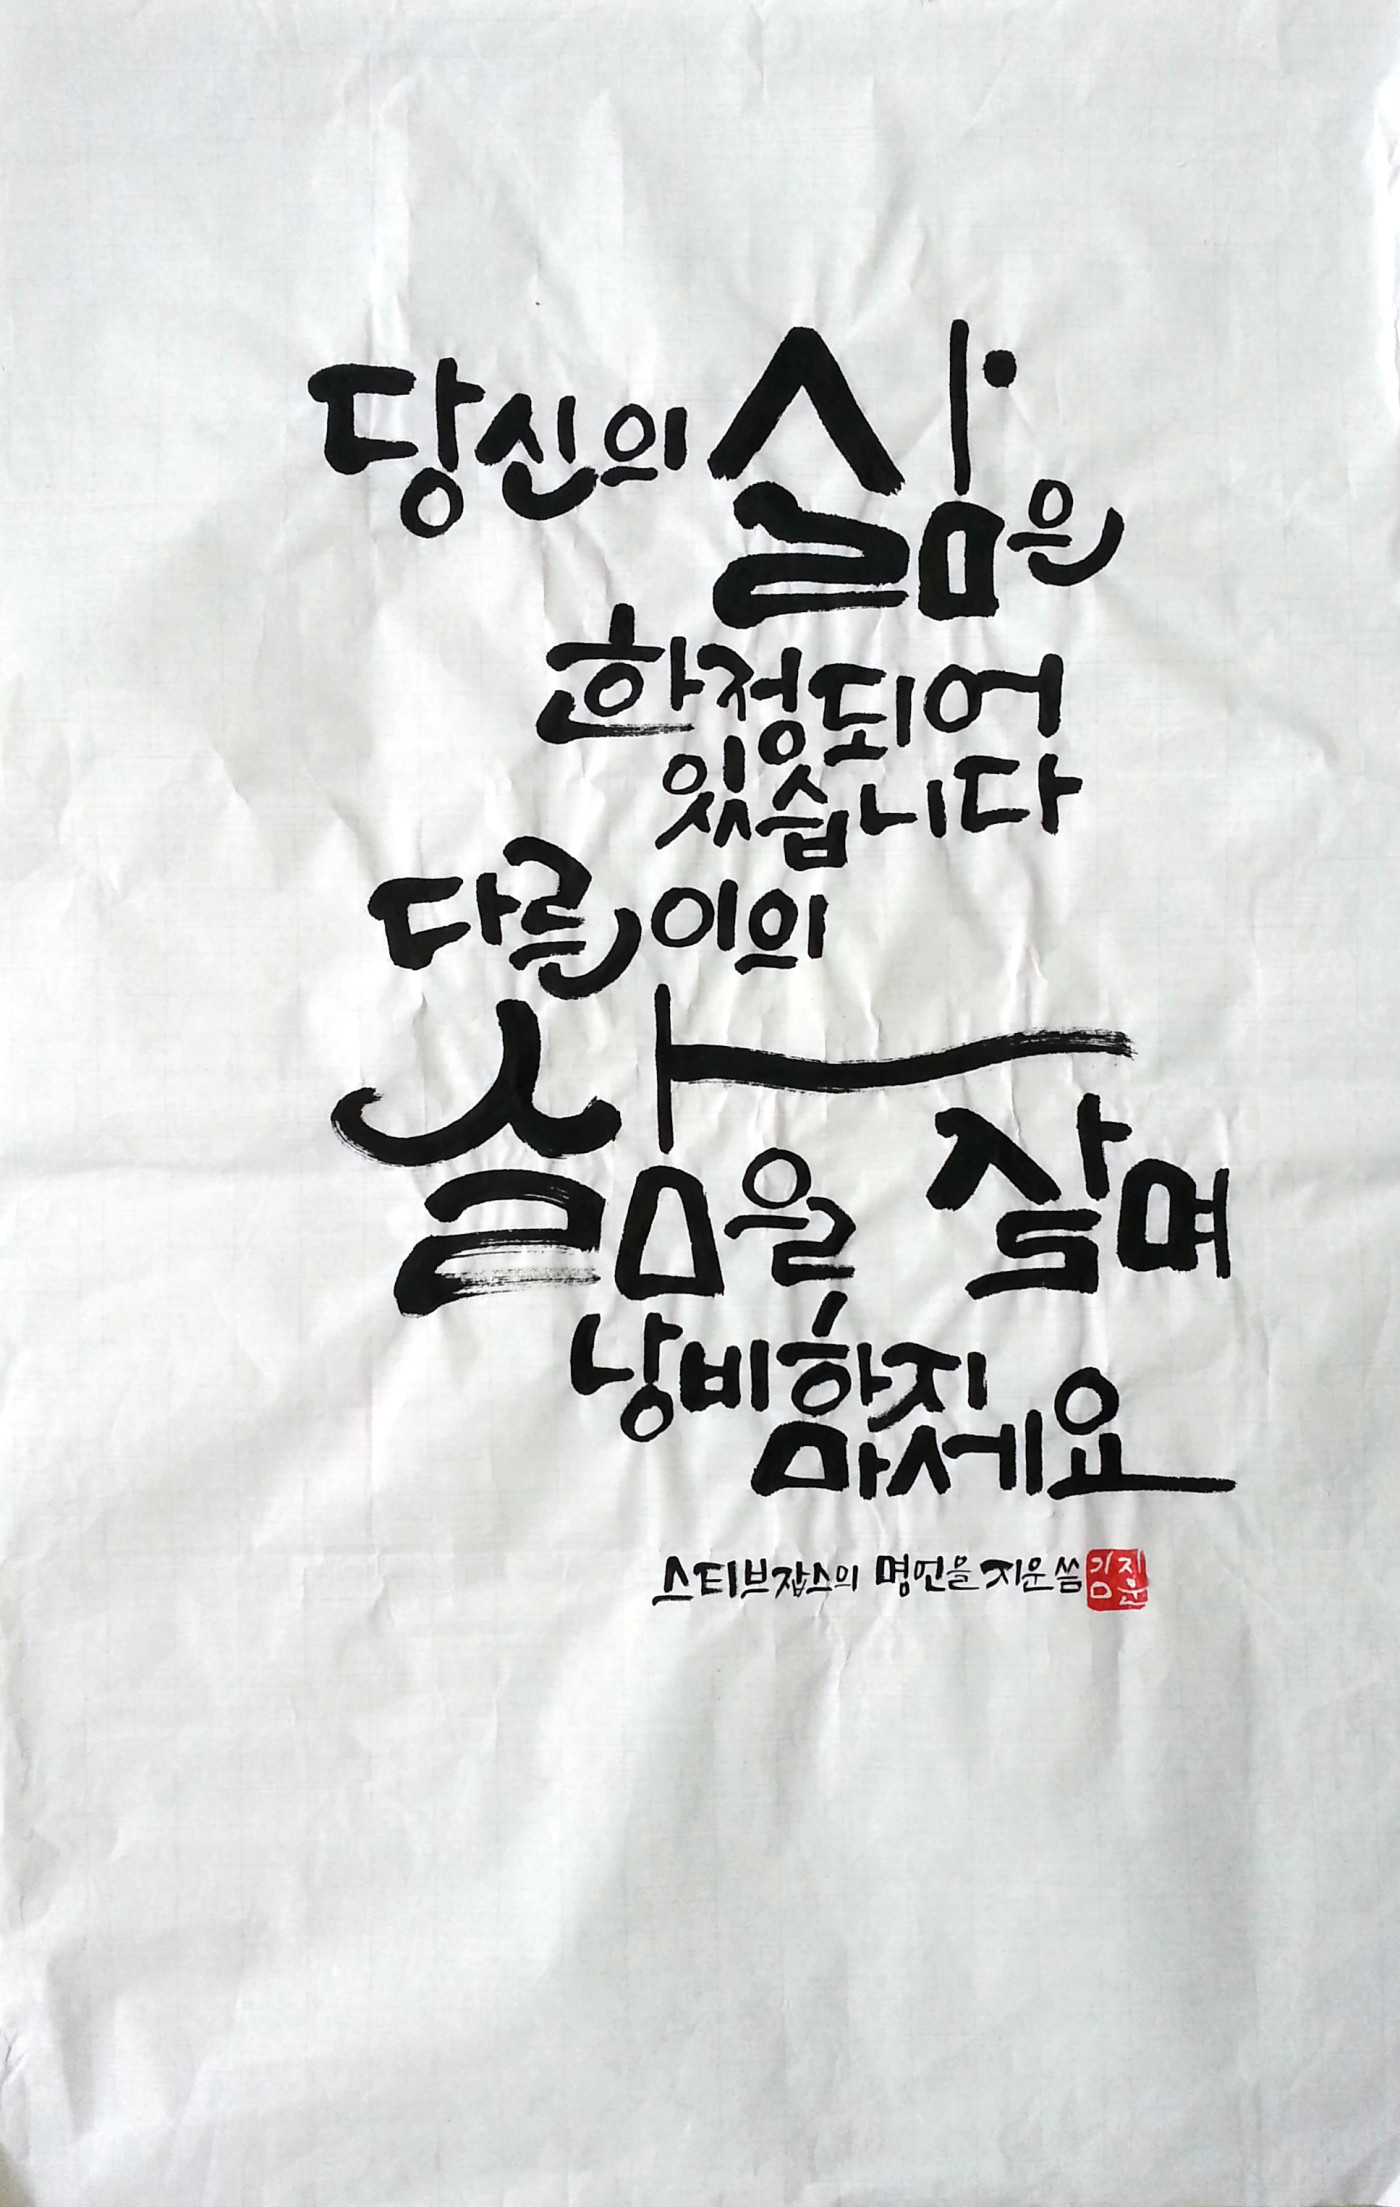 당신의 삶은
한정되어
있습니다
다른 이의
삶을 살며
낭비하지
마세요
스티브잡스의 명언을 지운 씀 김지운